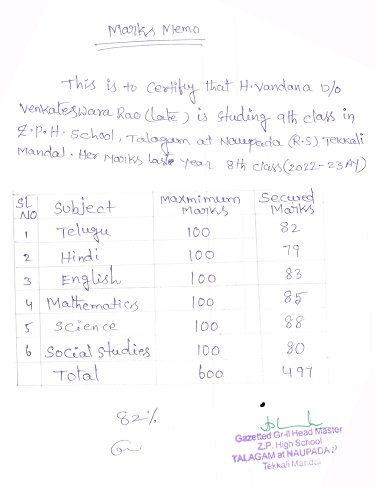 Marks Memo
This is to certify that H.Vandana D/o
Venkateswara Rao (Late) is studing 9th class in
Z.P.H. School, Talagam at Naupada (R.S) Tekkali
Mandal. Her Marks last year 8th class (2022-23 AY)
SL NO Subject Maxmimum Marks Secured Marks
1 Telugu 100 82
2 Hindi 100 79
3 English 100 83
4 Mathematics 100 85
5 Science 100 88
6 Social studies 100 80
Total 600 497
82%
Gazetted Gr-II Head Master
Z.P. High School
TALAGAM at NAUPADA
Tekkali Mandal